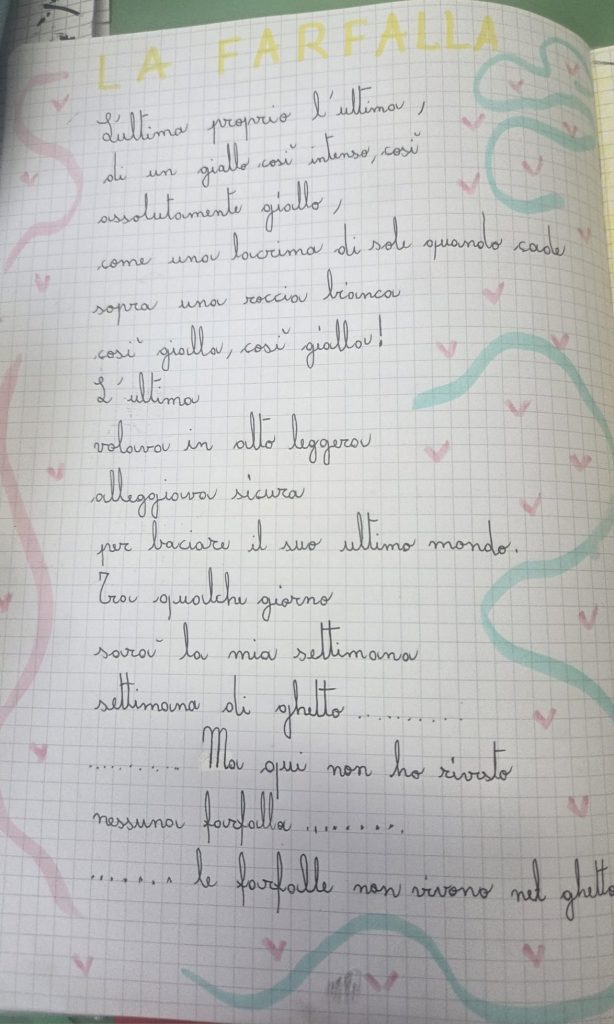 LA FARFALLA
L'ultima proprio l'ultima,
di un giallo così intenso, così
assolutamente giallo,
come una lacrima di sole quando cade
sopra una roccia bianca
così gialla, così gialla!
L'ultima
volava in alto leggera
alleggiava sicura
per baciare il suo ultimo mondo.
Tra qualche giorno
sarà la mia settimana
settimana di ghetto ..........
.......... Ma qui non ho rivisto
nessuna farfalla .........
....... le farfalle non vivono nel ghetto